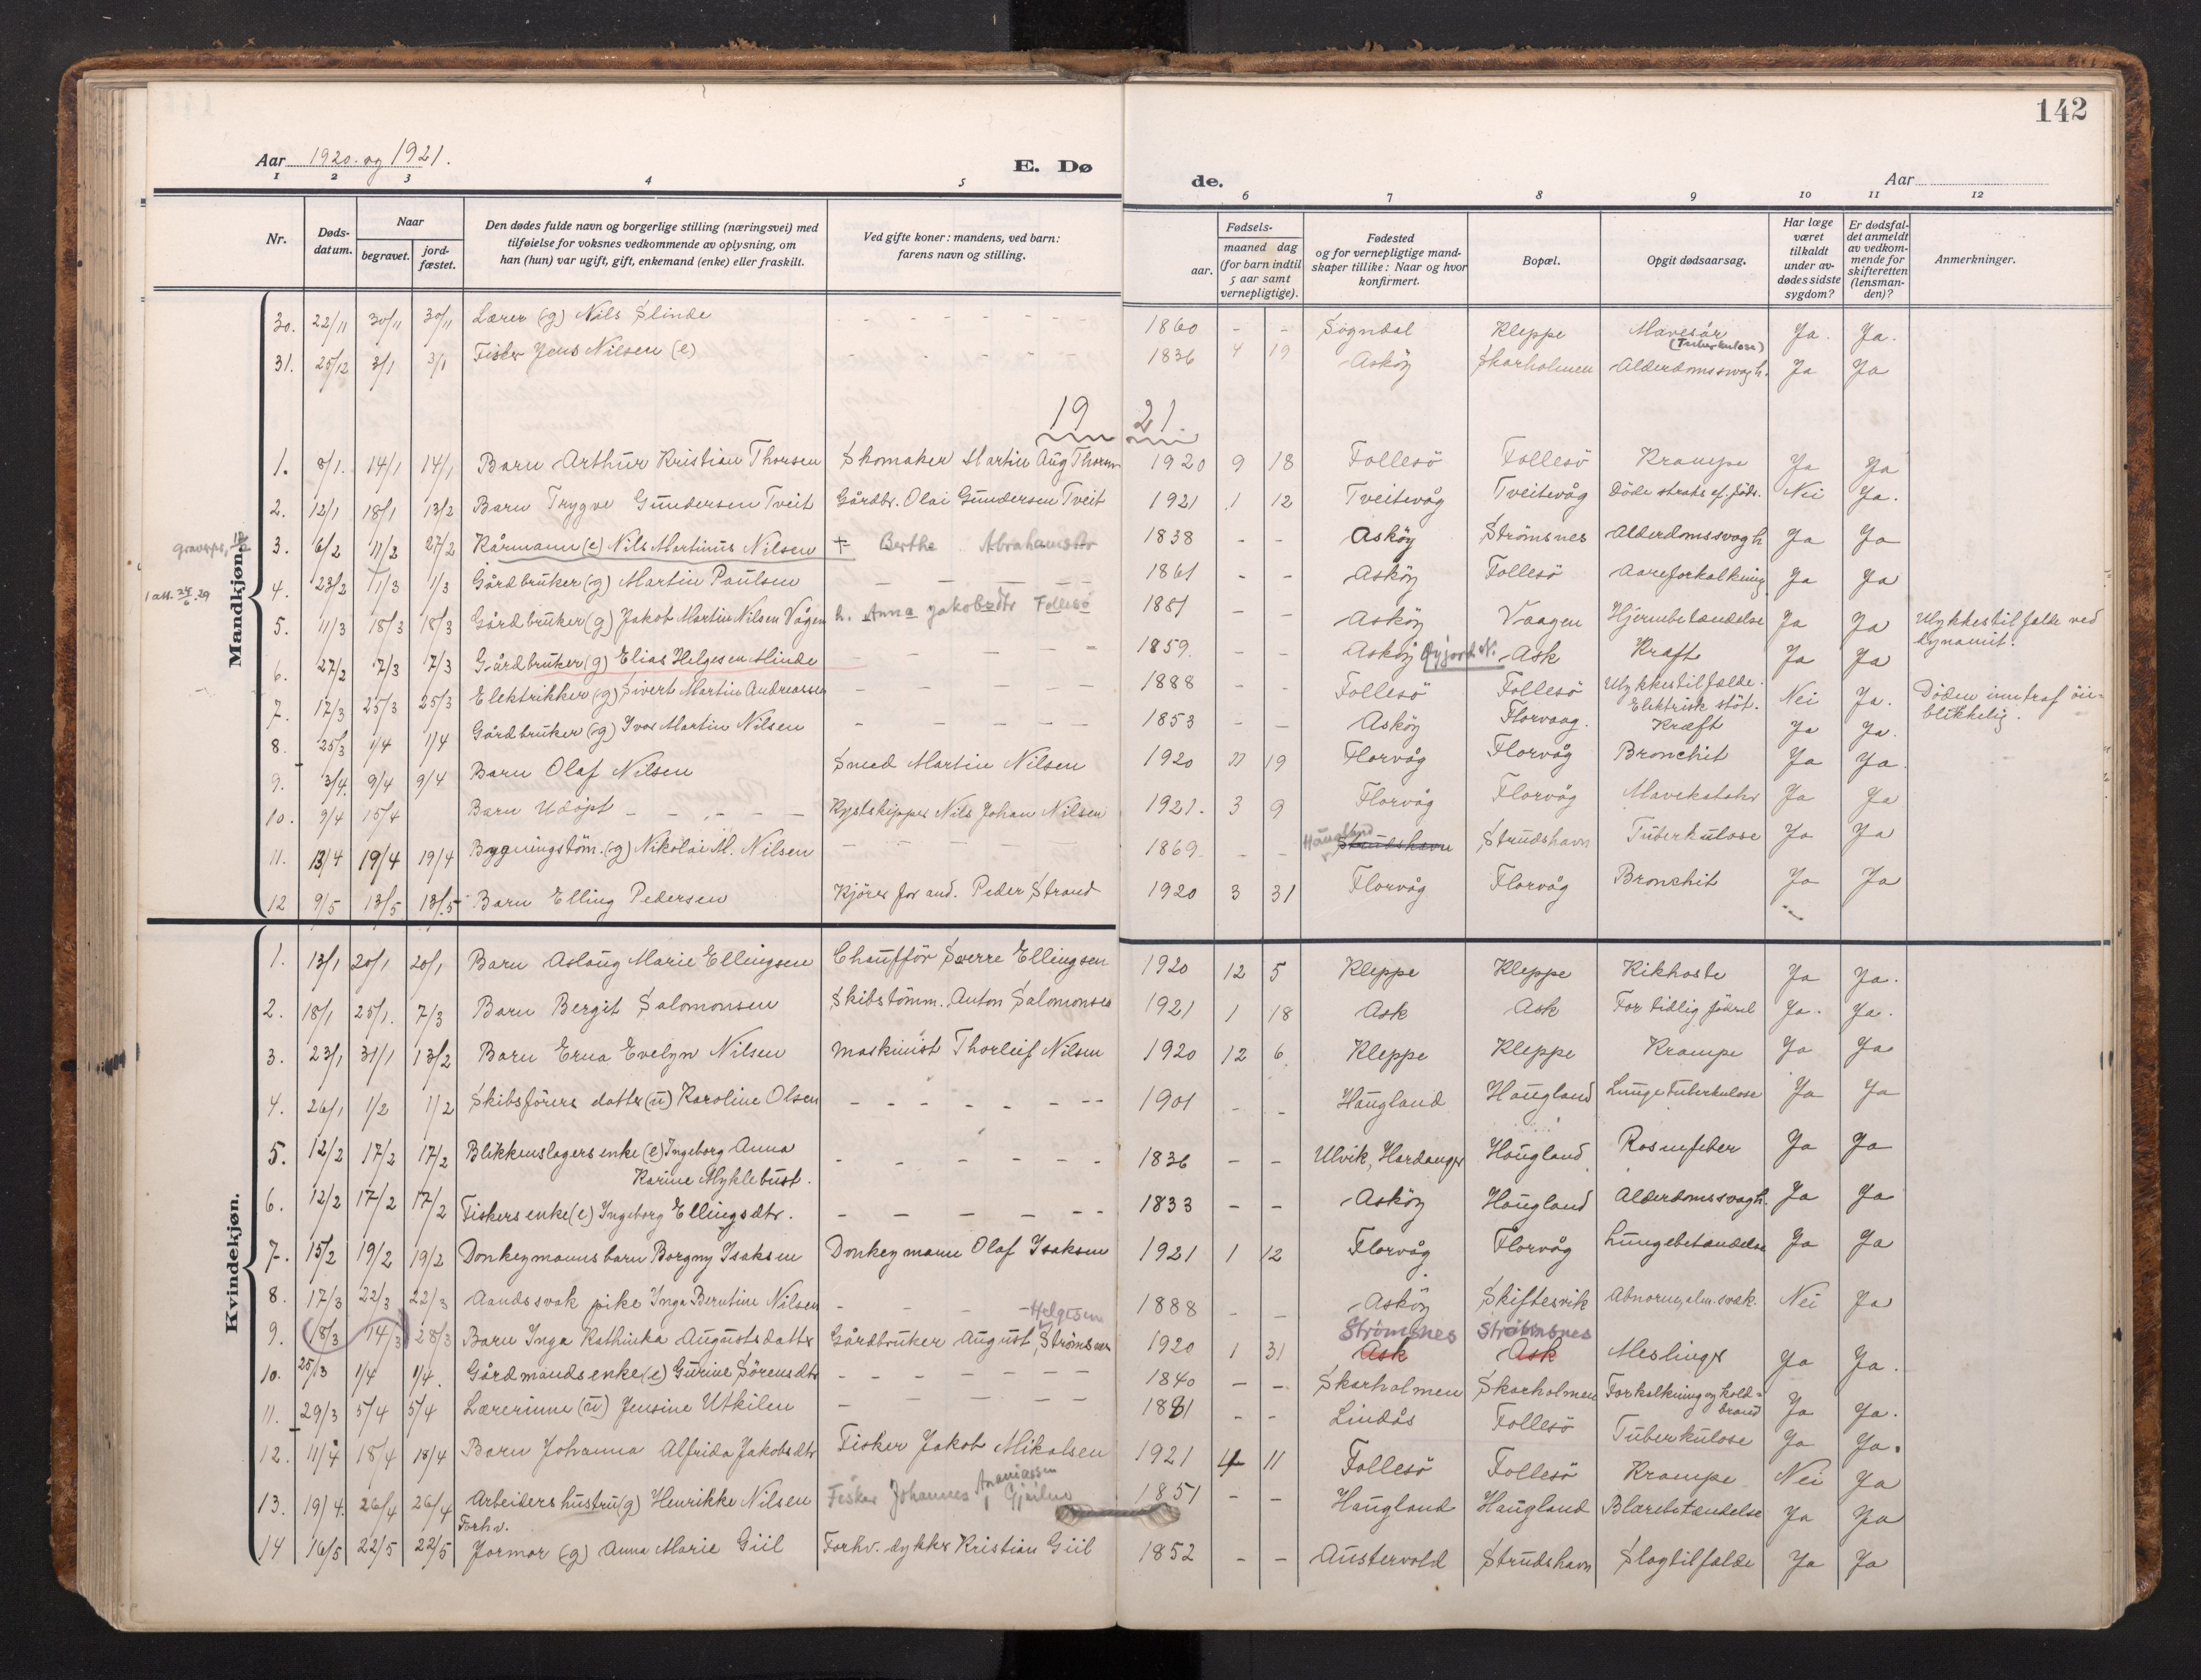 142
Aar 1920. og 1921.
E. Dø
de.
Aar
1 2 3 4 5 6 7 8 9 10 11 12
Nr.
Døds-datum.
Naar
begravet.
jord-fæstet.
Den dødes fulde navn og borgerlige stilling (næringsvei) med
tilføielse for voksnes vedkommende av oplysning, om
han (hun) var ugift, gift, enkemand (enke) eller fraskilt.
Ved gifte koner: mandens, ved barn:
farens navn og stilling.
Fødsels-
aar.
maaned dag
(for barn indtil
5 aar samt
vernepligtige).
Fødested
og for vernepligtige mand-
skaper tillike: Naar og hvor
konfirmert.
Bopæl.
Opgit dødsaarsag.
Har læge
været
tilkaldt
under av-
dødes sidste
sygdom?
Er dødsfal-
det anmeldt
av vedkom-
mende for
skifteretten
(lensman-
den)?
Anmerkninger.
Mandkjøn.
30. 22/11 30/11 30/11 Lærer (g) Nils Slinde - - - - - - - 1860 - - Sogndal Kleppe Mavesår (Tuberkulose) Ja. Ja.
31. 25/12 3/1 3/1 Fisker Jens Nilsen (e) - - - - - - 1836 4 19 Askøy Skarholmen Alderdomssvagh. Ja Ja
19 21.
1. 8/1. 14/1 14/1 Barn Arthur Kristian Thorsen Skomaker Martin Aug Thorsen 1920 9 18 Follesö Follesö Krampe Ja Ja
2. 12/1 18/1 13/2 Barn Trygve Gundersen Tveit Gårdbr. Olai Gundersen Tveit 1921 1 12 Tveitevåg Tveitevåg Döde straks ef. föds. Nei Ja.
3. 6/2 11/2 27/2 Kårmann (e) Nils Martinus Nilsen + Berthe Abrahamsdtr 1838 - - Askøy Strömsnes Alderdomssvagh Ja Ja
4. 23/2 1/3 1/3 Gårdbruker (g) Martin Paulsen - - - - - 1861 - - Askøy Follesö Aareforkalkning Ja Ja
1 att. 24/6.29
5. 11/3 18/3 18/3 Gårdbruker (g) Jakob Martin Nilsen Vågen h. Anna Jakobsdtr Follesö 1881 - - Askøy Vaagen Hjernebetændelse Ja Ja Ulykkestilfælde ved dynamit.
6. 27/2 7/3 7/3 Gårdbruker (g) Elias Helgesen Minde - - - - - 1859. - - Askøy Ask Kræft Ja Ja
7. 17/3 25/3 25/3 Elektrikker (g) Sivert Martin Andreassen - - - - - 1888 - - Follesö Follesö Ulykkestilfælde. Elektrisk stöt. Nei Ja. Döden inntraf öie-blikkelig.
8. 25/3 1/4 1/4 Gårdbruker (g) Ivar Martin Nilsen - - - - - 1853 - - Askøy Florvaag. Kræft Ja Ja.
9. 3/4. 9/4 9/4 Barn Olaf Nilsen Smed Martin Nilsen 1920 11 19 Florvåg Florvåg Bronchit Ja Ja.
10. 9/4 15/4 Barn Udöpt - - - - - Kystskipper Nils Johan Nilsen 1921. 3 9 Florvåg Florvåg Mavekatahr Ja Ja
11. 13/4 19/4 19/4 Bygningstöm. (g) Nikolai M. Nilsen - - - - - 1869. - - Haugland Strudshavn Strudshavn Tuberkulose Ja Ja
12 9/5 13/5 13/5 Barn Elling Pedersen Kjörer for and. Peder Strand 1920 3 31 Florvåg Florvåg Bronchit Ja Ja
Kvindekjøn.
1. 13/1 20/1 20/1 Barn Aslaug Marie Ellingsen Chaufför Sverre Ellingsen 1920 12 5 Kleppe Kleppe Kikhoste Ja Ja.
2. 18/1 25/1. 7/3 Barn Bergit Salomonsen Skibstömm. Anton Salomonsen 1921 1 18 Ask Ask For tidlig födsel Ja. Ja.
3. 23/1 31/1 13/2 Barn Erna Evelyn Nilsen Maskinist Thorleif Nilsen 1920 12 6 Kleppe Kleppe Krampe Ja Ja
4. 26/1 1/2 1/2 Skibsförers datter (u) Karoline Olsen - - - - - - 1901 - - Haugland Haugland Lunge Tuberkulose Ja Ja
5. 12/2 17/2 17/2 Blikkenslagers enke (e) Ingeborg Anna Karine Myklebust. - - - - - - 1836 - - Ulvik, Hardanger Haugland Rosenfeber Ja Ja
6. 12/2 17/2 17/2 Fiskers enke (e) Ingeborg Ellingsdtr. - - - - - - 1833 - - Askøy Haugland Alderdomssvagh. Ja Ja
7. 15/2 19/2 19/2 Donkeymanns barn Borgny Isaksen Donkeymann Olaf Isaksen 1921 1 12 Florvåg Florvåg Lungebetændelse Ja Ja
8. 17/3 22/3 22/3 Aandssvak pike Inga Berntine Nilsen - - - 1888 - - Askøy Skiftesvik Abnorm, alm. svæk. Nei Ja
9. 18/3 14/3 28/3 Barn Inga Kathinka Augustsdatter Gårdbruker August Helgesen Strömsnes 1920 1 31 Strömsnes Ask Strömsnes Ask Meslinger Ja Ja.
10. 25/3 1/4 1/4. Gårdmands enke (e) Gurine Sörensdtr - - - - - - 1840 - - Skarholmen Skarholmen Forkalkning og kold-brand Ja Ja.
11. 29/3 5/4 5/4 Lærerinne (u) Jensine Utkilen - - - - 1881 - - Lindås Follesö Tuberkulose Ja Ja.
12. 11/4 18/4 18/4 Barn Johanna Alfrida Jakobsdtr Fisker Jakob Mikalsen 1921 4 11 Follesö Follesö Krampe Nei Ja
13. 19/4. 26/4 26/4 Arbeiders hustru (g) Henrikke Nilsen Fisker Johannes Ananiassen 1851 - - Haugland Haugland Blærebetændelse Ja Ja
14 16/5 22/5 22/5 Forhv. Jormor (g) Anna Marie Giil Forhv. dykker Kristian Giil 1852 - - Austervold Strudshavn Slagtilfælde Ja Ja